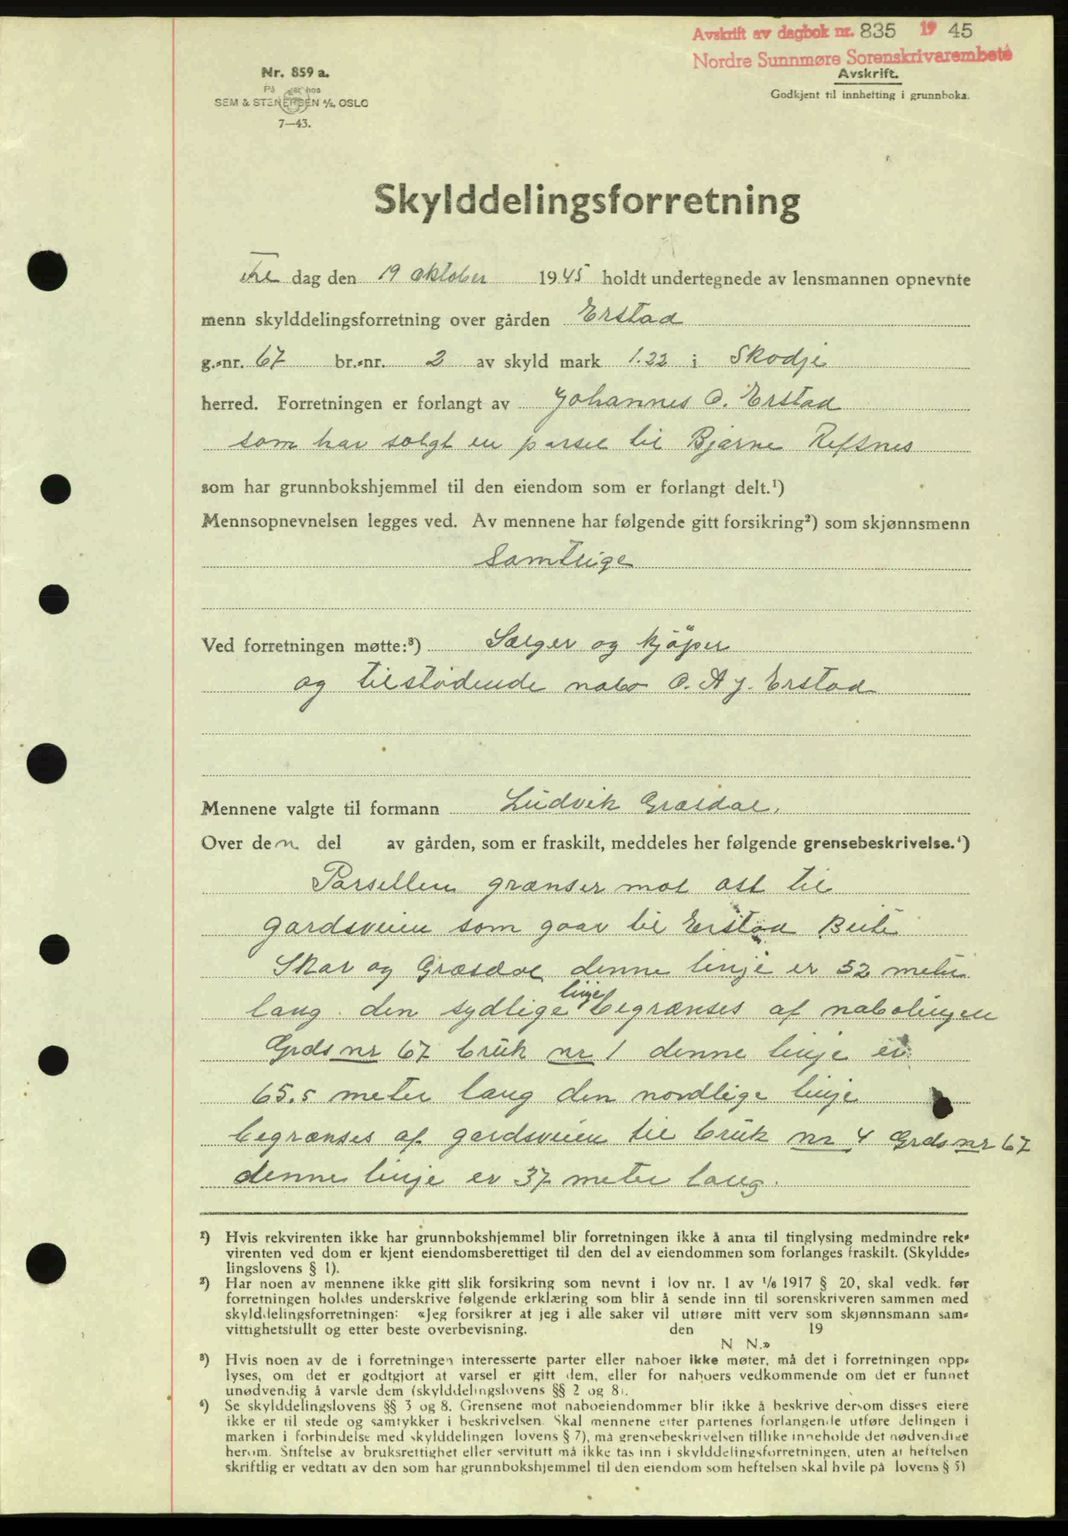 Avskrift av dagbok nr. 835 1945
Nordre Sunnmøre Sorenskrivarembete
Avskrift.
Godkjent til innhefting i grunnboka.
Nr. 859 a.
På lager hos
SEM & STENERSEN A/S, OSLO
7—43.
Skylddelingsforretning
Fre dag den 19 oktober 1945 holdt undertegnede av lensmannen opnevnte
menn skylddelingsforretning over gården Erstad
g.-nr. 67 br.-nr. 2 av skyld mark 1.22 i Skodje
herred. Forretningen er forlangt av Johannes O. Erstad
som har solgt en parsel til Bjarne Refsnes
som har grunnbokshjemmel til den eiendom som er forlangt delt.¹)
Mennsopnevnelsen legges ved. Av mennene har følgende gitt forsikring²) som skjønnsmenn
Samtlige
Ved forretningen møtte:³) Sælger og kjøper
og tilstødende nabo O. A. J. Erstad
Mennene valgte til formann Ludvik Græsdal.
Over den del av gården, som er fraskilt, meddeles her følgende grensebeskrivelse.⁴)
Parsellen grænser mot ost til
gardsveien som gaar til Erstad Beite
Skar og Græsdal denne linje er 52 meter
lang. den sydlige linje begrænses af nabolinjen
Grds nr 67 bruk nr 1 denne linje er
65.5 meter lang den nordlige linje
begrænses af gardsveien til bruk nr 4 Grds nr 67
denne linje er 37 meter lang.
¹) Hvis rekvirenten ikke har grunnbokshjemmel blir forretningen ikke å anta til tinglysing medmindre rek-
virenten ved dom er kjent eiendomsberettiget til den del av eiendommen som forlanges fraskilt. (Skyldde-
lingslovens § 1).
²) Har noen av mennene ikke gitt slik forsikring som nevnt i lov nr. 1 av 1/6 1917 § 20, skal vedk. før
forretningen holdes underskrive følgende erklæring som blir å sende inn til sorenskriveren sammen med
skylddelingsforretningen: «Jeg forsikrer at jeg i alle saker vil utføre mitt verv som skjønnsmann sam-
vittighetsfullt og etter beste overbevisning. den 19
N N.»
³) Hvis noen av de i forretningen interesserte parter eller naboer ikke møter, må det i forretningen opp-
lyses, om det er godtgjort at varsel er gitt dem, eller for naboers vedkommende om det er funnet
unødvendig å varsle dem (skylddelingslovens §§ 2 og 8).
⁴) Se skylddelingslovens §§ 3 og 8. Grensene mot naboeiendommer blir ikke å beskrive dersom disses eiere
ikke er til stede og samtykker i beskrivelsen. Skal mennene etter partenes forlangende utføre delingen i
marken i forbindelse med skylddelingen (lovens § 7), må grensebeskrivelsen tillike inneholde det nødvendige
herom. Stiftelse av bruksrettighet eller servitutt må ikke tas inn i skylddelingsforretningen, uten at heftelsen
skriftlig er vedtatt av den som har grunnbokshjemmel til den eiendom som heftelsen skal hvile på (lovens § 5)